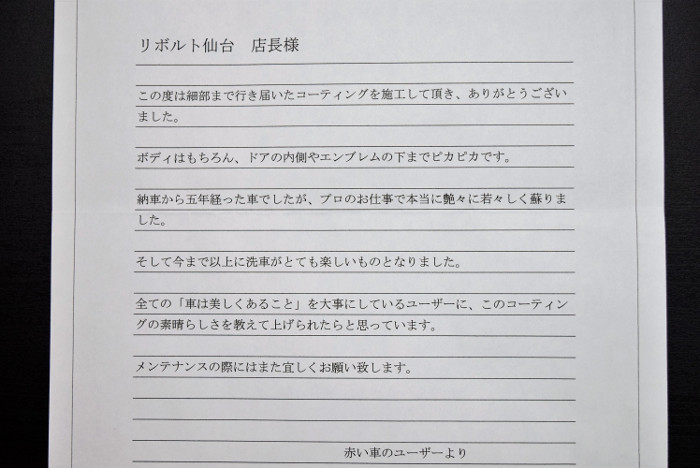 リボルト仙台　店長様
この度は細部まで行き届いたコーティングを施工して頂き、ありがとうござい
ました。
ボディはもちろん、ドアの内側やエンブレムの下までピカピカです。
納車から五年経った車でしたが、プロのお仕事で本当に艶々に若々しく蘇りま
した。
そして今まで以上に洗車がとても楽しいものとなりました。
全ての「車は美しくあること」を大事にしているユーザーに、このコーティン
グの素晴らしさを教えて上げられたらと思っています。
メンテナンスの際にはまた宜しくお願い致します。
赤い車のユーザーより